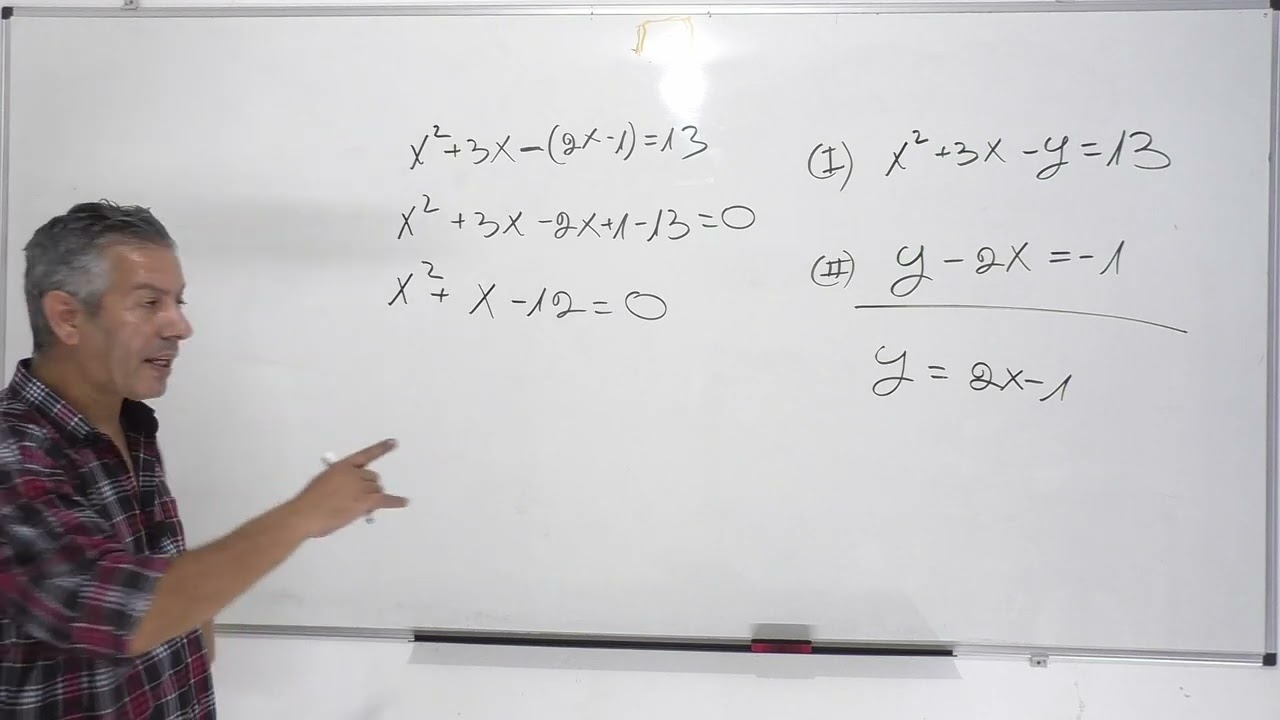 x²+3x-(2x-1)=13
x²+3x-2x+1-13=0
x²+x-12=0
(I) x²+3x-y=13
(II) y-2x=-1
y=2x-1